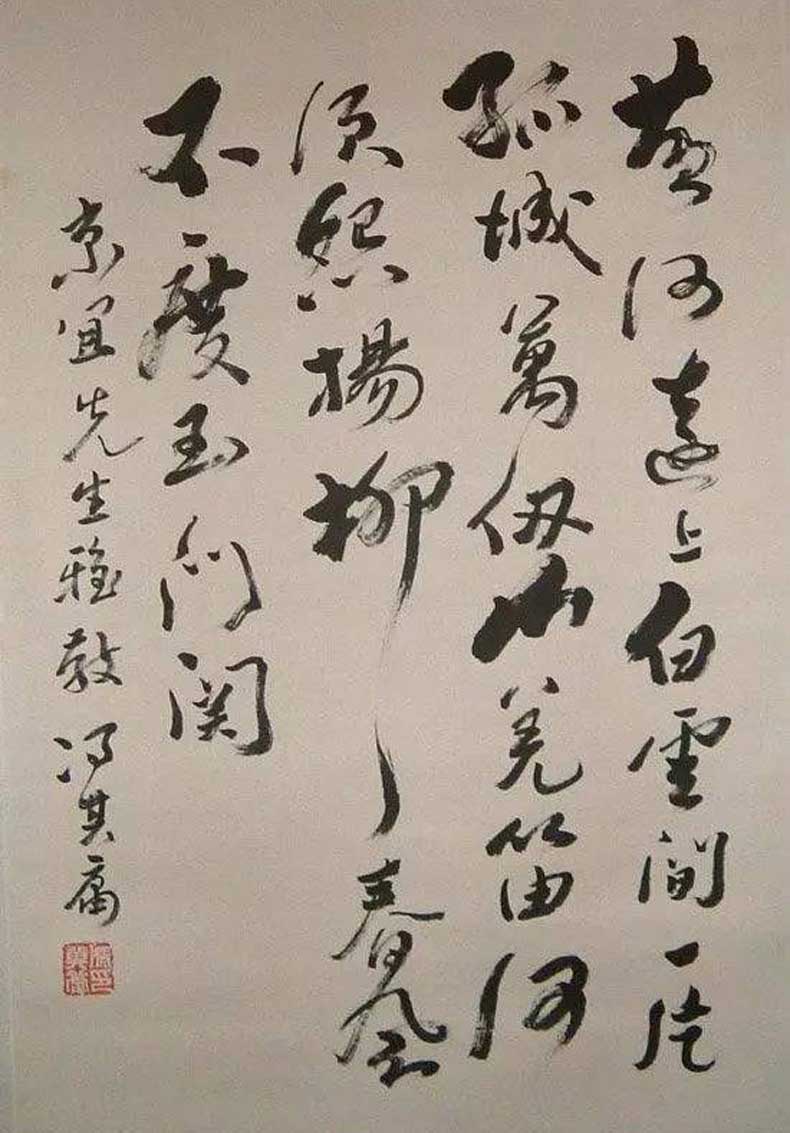 黄河遠上白雲間一片
孤城萬仞山羌笛何
须怨楊柳春風
不度玉门関
京宜先生雅教 冯其庸